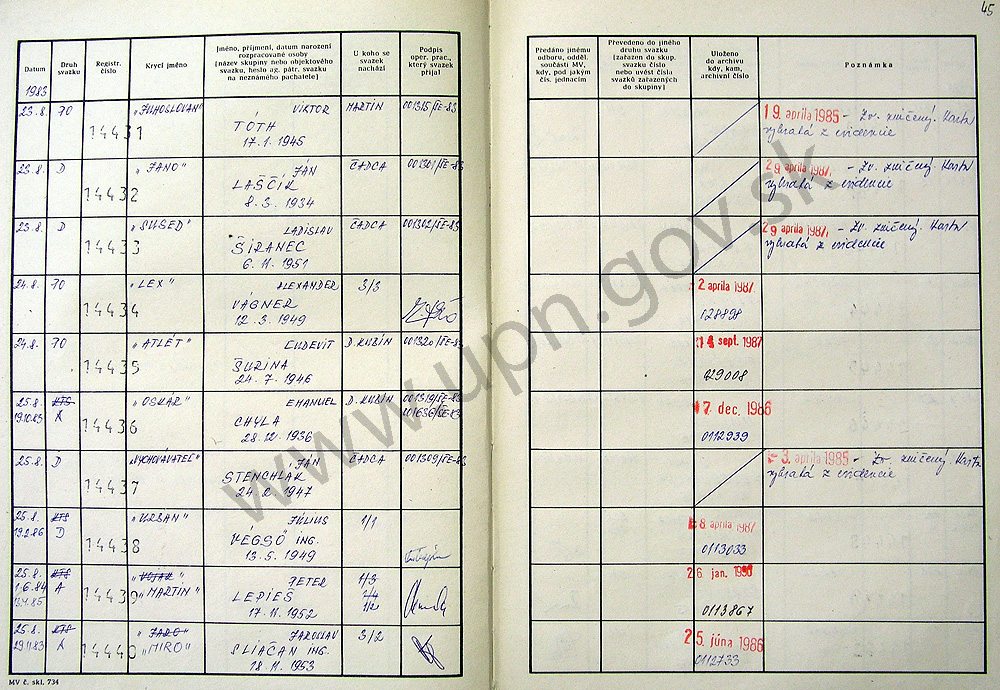 45
Datum
1983
Druh svazku
Registr. číslo
Krycí jméno
Jméno, příjmení, datum narození rozpracované osoby (název skupiny nebo objektového svazku, heslo ag. pátr. svazku na neznámého pachatele)
U koho se svazek nachází
Podpis oper. prac., který svazek přijal
Předáno jinému odboru, odděl. součásti MV, kdy, pod jakým čís. jednacím
Převedeno do jiného druhu svazku (zařazen do skup. svazku číslo nebo uvést číslo svazků zařazených do skupiny)
Uloženo do archivu kdy, kam, archivní číslo
Poznámka
23.8. 70 14431 „JUHOSLOVAN" VIKTOR MARTIN 001315/ŠE-83
TÓTH
17.1.1945
19. apríla 1985 - Zv. zničený. Karta
vybratá z evidencie
23.8. D 14432 „JANO" JÁN ČADCA
LAŠČÍK
8.3.1934
29 apríla 1987, - Zv. zničený. Karta
vybratá z evidencie
23.8. D 14433 „SUSED" LADISLAV ČADCA
ŠIRANEC
6.11.1951
29 apríla 1987, - Zv. zničený. Karta
vybratá z evidencie
24.8. 70 14434 „LEX" ALEXANDER 3/3
VÁGNER
12.3.1949
2 apríla 1987
128898
24.8. 70 14435 „ATLÉT" ĽUDEVÍT D.KUBÍN 001320/ŠE-83
ŠURINA
24.7.1946
14 sept. 1987
25.8. KTS 14436 „OSKAR" EMANUEL D.KUBÍN 001319/ŠE-83
19.10.83 A CHYLA
28.12.1936
7 dec. 1986
0112939
25.8. D 14437 „VYCHOVÁVATEĽ" JÁN ČADCA 001309/ŠE-83
STENCHLÁK
1947
3. apríla 1985 - Zv. zničený. Karta
vybratá z evidencie
25.8. KTS 14438 „URBAN" JÚLIUS 1/1
19.2.86 D VÉGSÖ ING.
13.5.1949
8. apríla 1987
0113033
25.8. KTS 14439 „VOJAK" PETER 1/3
1.6.84 A „MARTIN" LEPIEŠ 2/4
17.11.1952 1/2
26. jan.
0113867
25.8. KTS 14440 „JARO" JAROSLAV 3/2
29.11.83 A „MIRO" SLIAČAN ING.
18.11.1953
25. júna 1986
0112733
MV č. skl. 734
www.upn.gov.sk